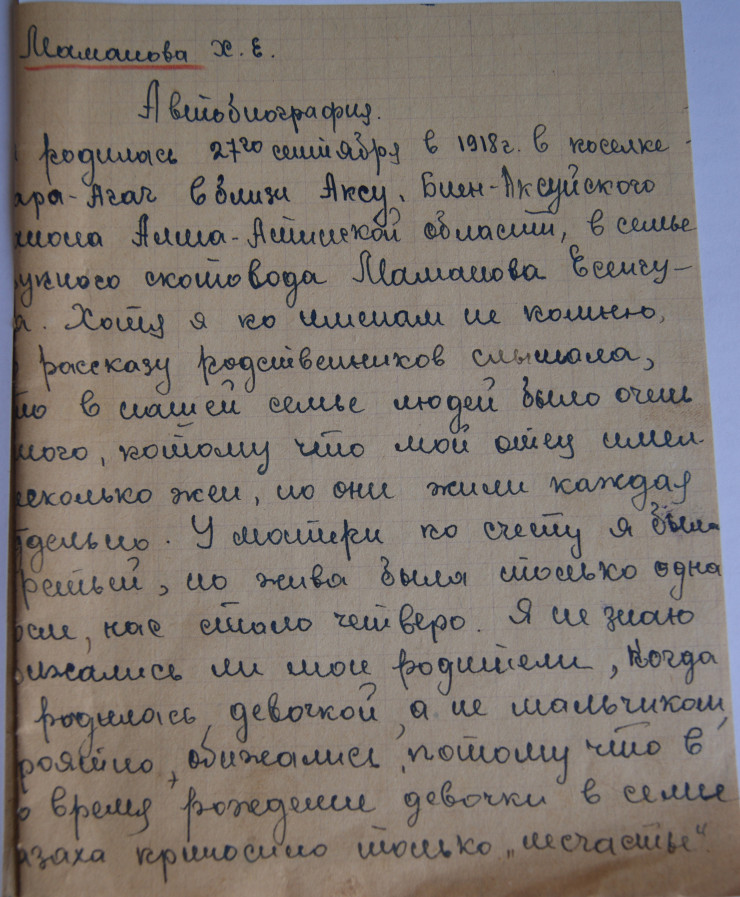 Маманова Х. Е.
Автобиография.
родилась 27го сентября в 1918г. в поселке
ара-Агач вблизи Аксу, Биен-Аксуйского
йона Алма-Атинской области, в семье
упного скотовода Маманова Есенгу-
а. Хотя я по именам не помню,
рассказу родственников слышала,
то в нашей семье людей было очень
ного, потому что мой отец имел
есколько жен, но они жили каждая
тдельно. У матери по счету я была
ретьей, но жива была только одна
нас стало четверо. Я не знаю
бижались ли мои родители, когда
родилась девочкой, а не мальчиком,
роятно, обижались, потому что в
о время рождение девочки в семье
азаха приносило только „несчастье“.